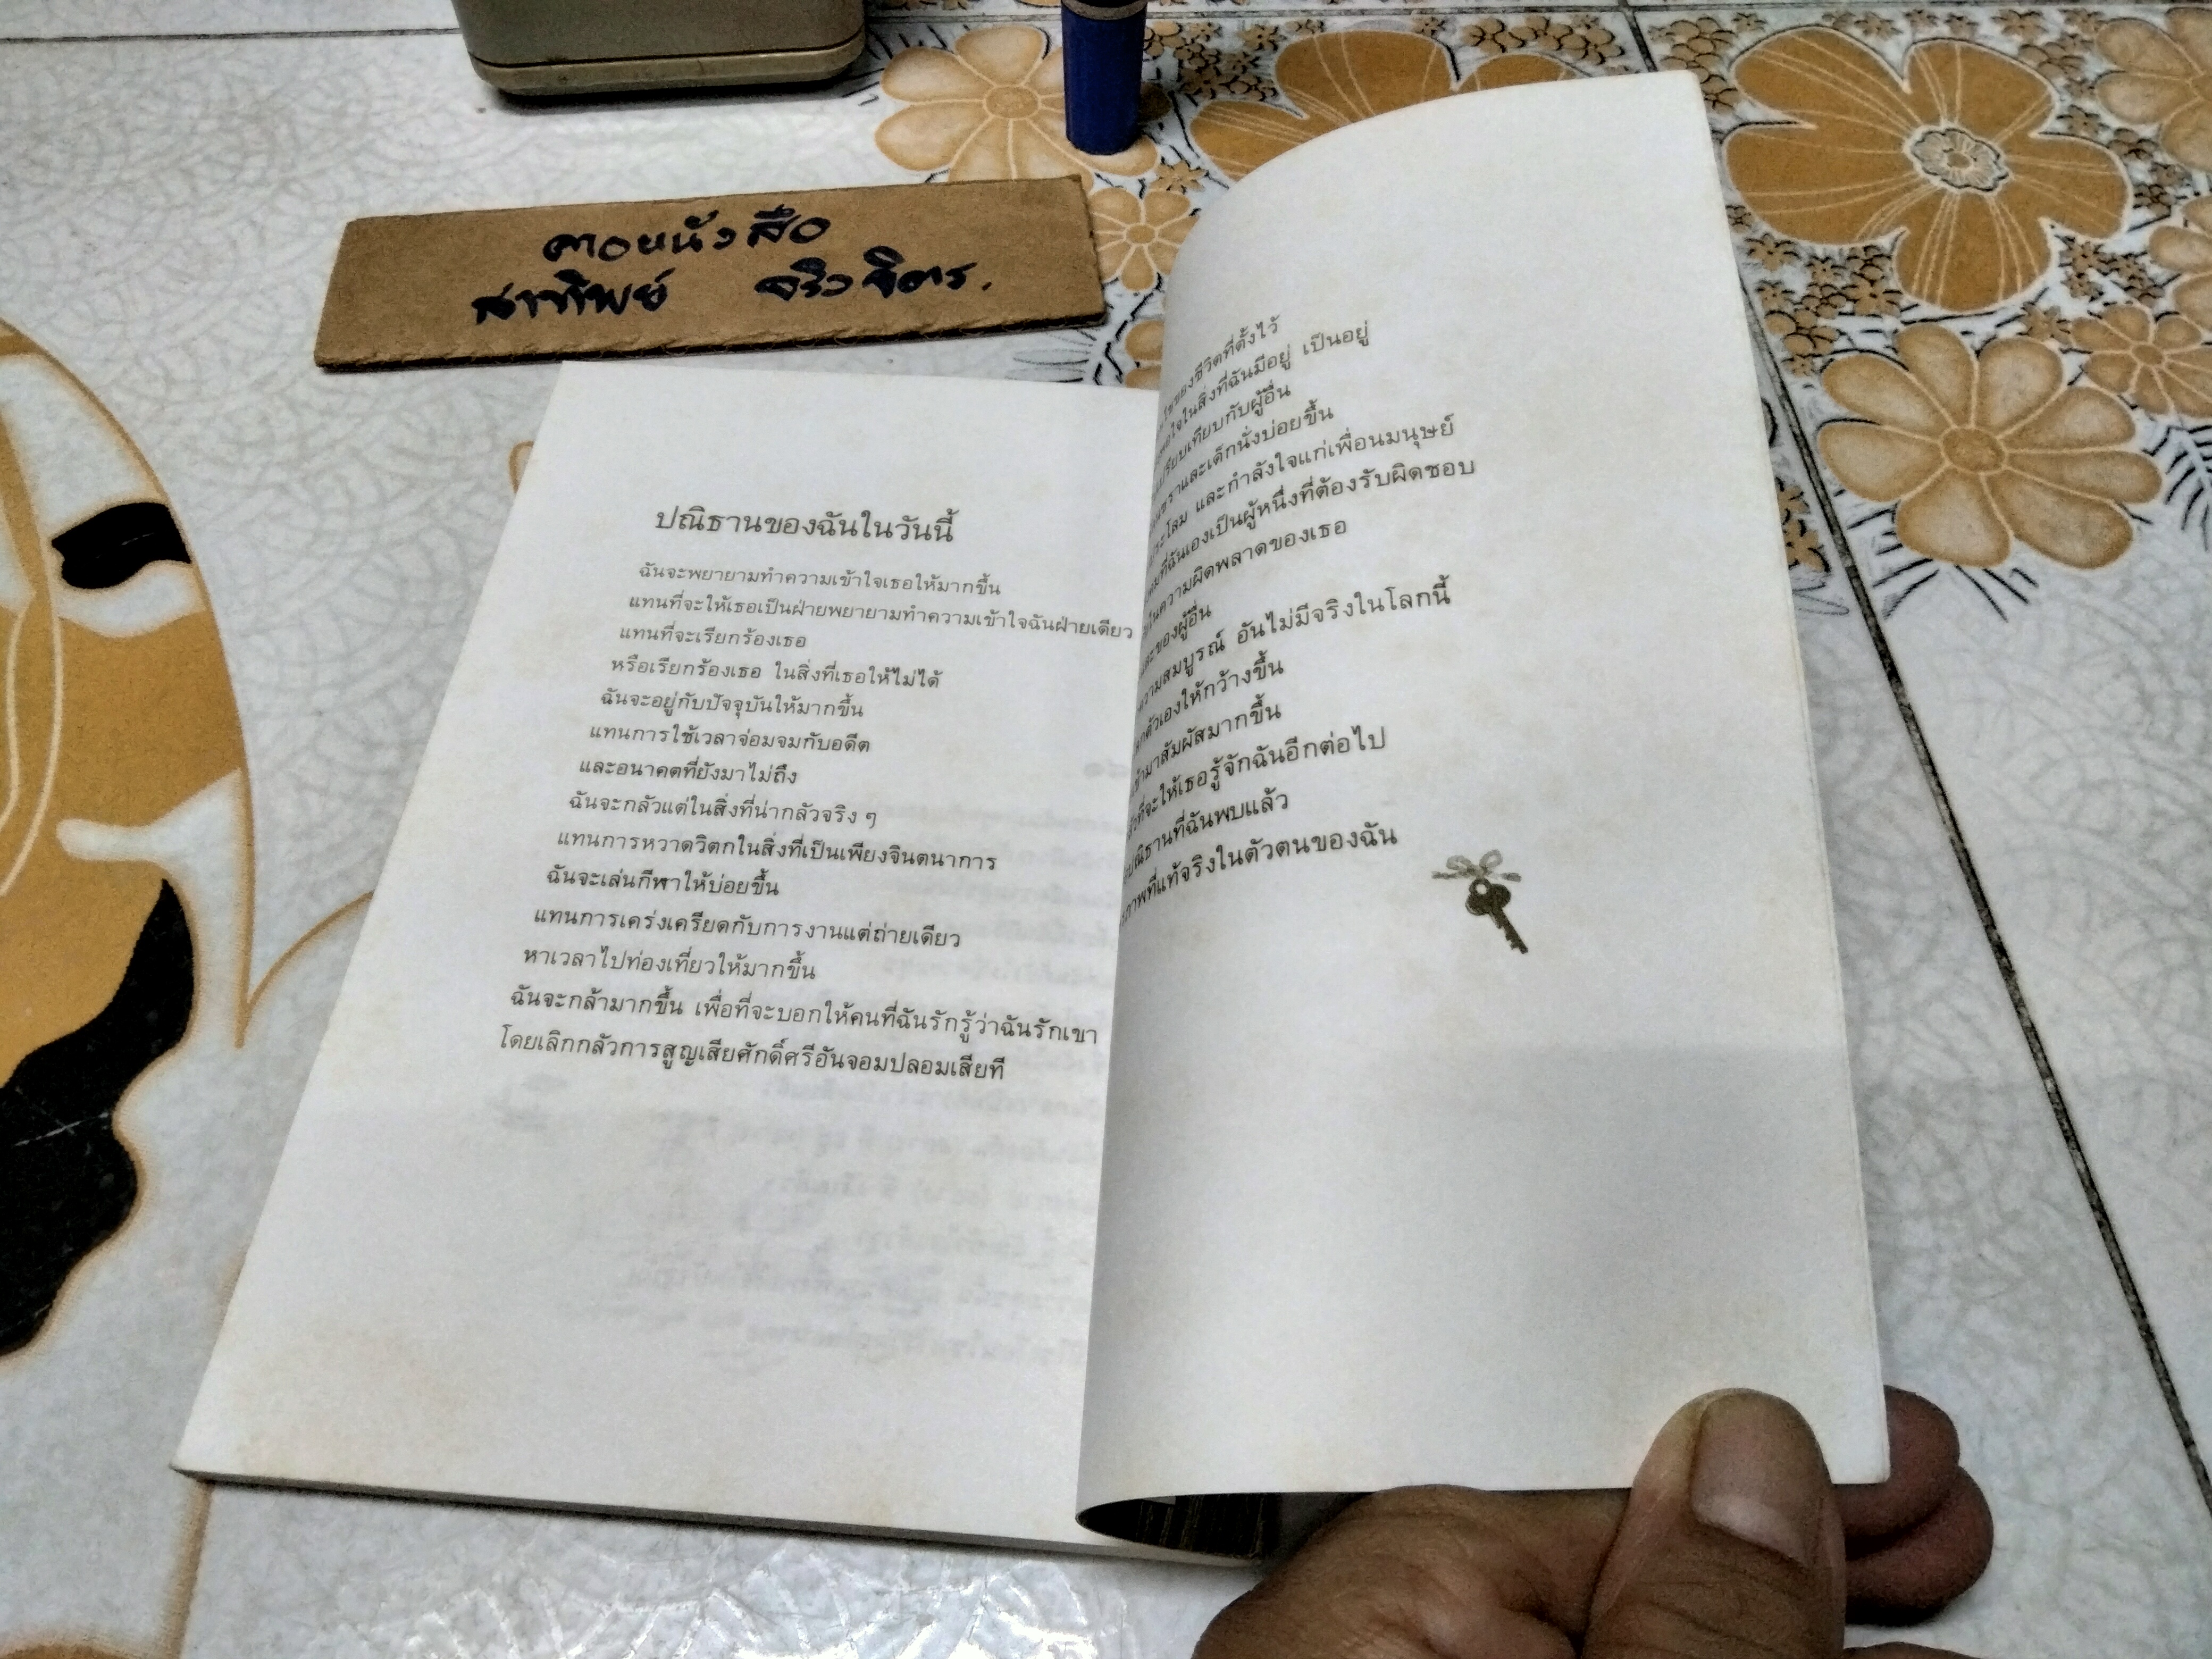 ดาวหนังสือ
สาทิพย์ จริงจิตร.
ปณิธานของฉันในวันนี้
ฉันจะพยายามทำความเข้าใจเธอให้มากขึ้น
แทนที่จะให้เธอเป็นฝ่ายพยายามทำความเข้าใจฉันฝ่ายเดียว
แทนที่จะเรียกร้องเธอ
หรือเรียกร้องเธอ ในสิ่งที่เธอให้ไม่ได้
ฉันจะอยู่กับปัจจุบันให้มากขึ้น
แทนการใช้เวลาจ่อมจมกับอดีต
และอนาคตที่ยังมาไม่ถึง
ฉันจะกลัวแต่ในสิ่งที่น่ากลัวจริง ๆ
แทนการหวาดวิตกในสิ่งที่เป็นเพียงจินตนาการ
ฉันจะเล่นกีฬาให้บ่อยขึ้น
แทนการเคร่งเครียดกับการงานแต่ถ่ายเดียว
หาเวลาไปท่องเที่ยวให้มากขึ้น
ฉันจะกล้ามากขึ้น เพื่อที่จะบอกให้คนที่ฉันรักรู้ว่าฉันรักเขา
โดยเลิกกลัวการสูญเสียศักดิ์ศรีอันจอมปลอมเสียที
ของชีวิตที่ตั้งไว้
ใจในสิ่งที่ฉันมีอยู่ เป็นอยู่
เปรียบเทียบกับผู้อื่น
ชราและเด็กนั่งบ่อยขึ้น
โลม และกำลังใจแก่เพื่อนมนุษย์
ที่ฉันเองเป็นผู้หนึ่งที่ต้องรับผิดชอบ
ในความผิดพลาดของเธอ
และของผู้อื่น
ความสมบูรณ์ อันไม่มีจริงในโลกนี้
ตัวเองให้กว้างขึ้น
เข้ามาสัมผัสมากขึ้น
ที่จะให้เธอรู้จักฉันอีกต่อไป
ปณิธานที่ฉันพบแล้ว
ภาพที่แท้จริงในตัวตนของฉัน